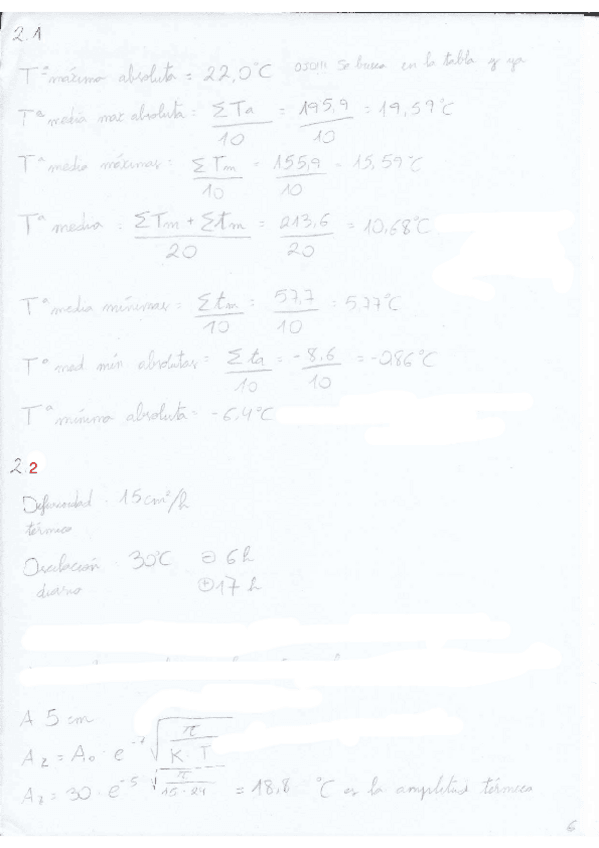 2.1
Tª máxima absoluta = 22,0°C ojo!!! Se busca en la tabla y ya
Tª media max absoluta = ΣTa/10 = 195,9/10 = 19,59°C
Tª media máximas = ΣTm/10 = 155,9/10 = 15,59°C
Tª media = ΣTm + Σtm/20 = 213,6/20 = 10,68°C
Tª media mínimas = Σtm/10 = 57,7/10 = 5,77°C
Tª med min absolutas = Σta/10 = -8,6/10 = -0,86°C
Tª mínima absoluta = -6,4°C
2.2
Difusividad · 15cm²/h
térmica
Oscilación · 30°C ⊖ 6h
diaria ⊕ 17 h
A 5 cm
Az = A0 · e^-z √π/K·T
Az = 30 · e^-5 √π/15·24 = 18,8 °C es la amplitud térmica
6